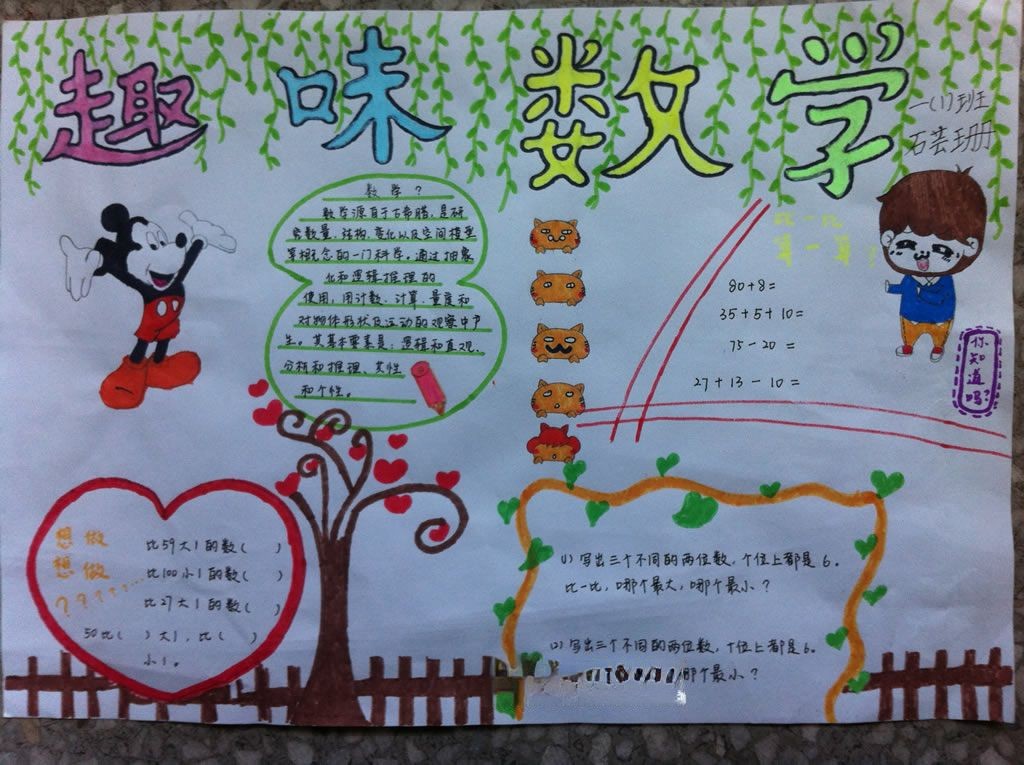 趣味数学
一(1)班
石芸珊
数学?
数学源自于古希腊,是研
究数量、结构、变化以及空间模型
等相概念的一门科学。通过抽象
化和逻辑推理的
使用,用计数、计算、量度和
对物体形状及运动的观察中产
生。其基本要素是:逻辑和直观、
分析和推理、共性
和个性。
比一比
算一算?
80+8=
35+5+10=
75-20=
27+13-10=
你知道吗?
想做
想做
????......
比59大1的数( )
比100小1的数( )
比27大1的数( )
50比( )大1,比( )
小1。
(1)写出三个不同的两位数,个位上都是6。
比一比,哪个最大,哪个最小?
(2)写出三个不同的两位数,个位上都是6。
那个最小?